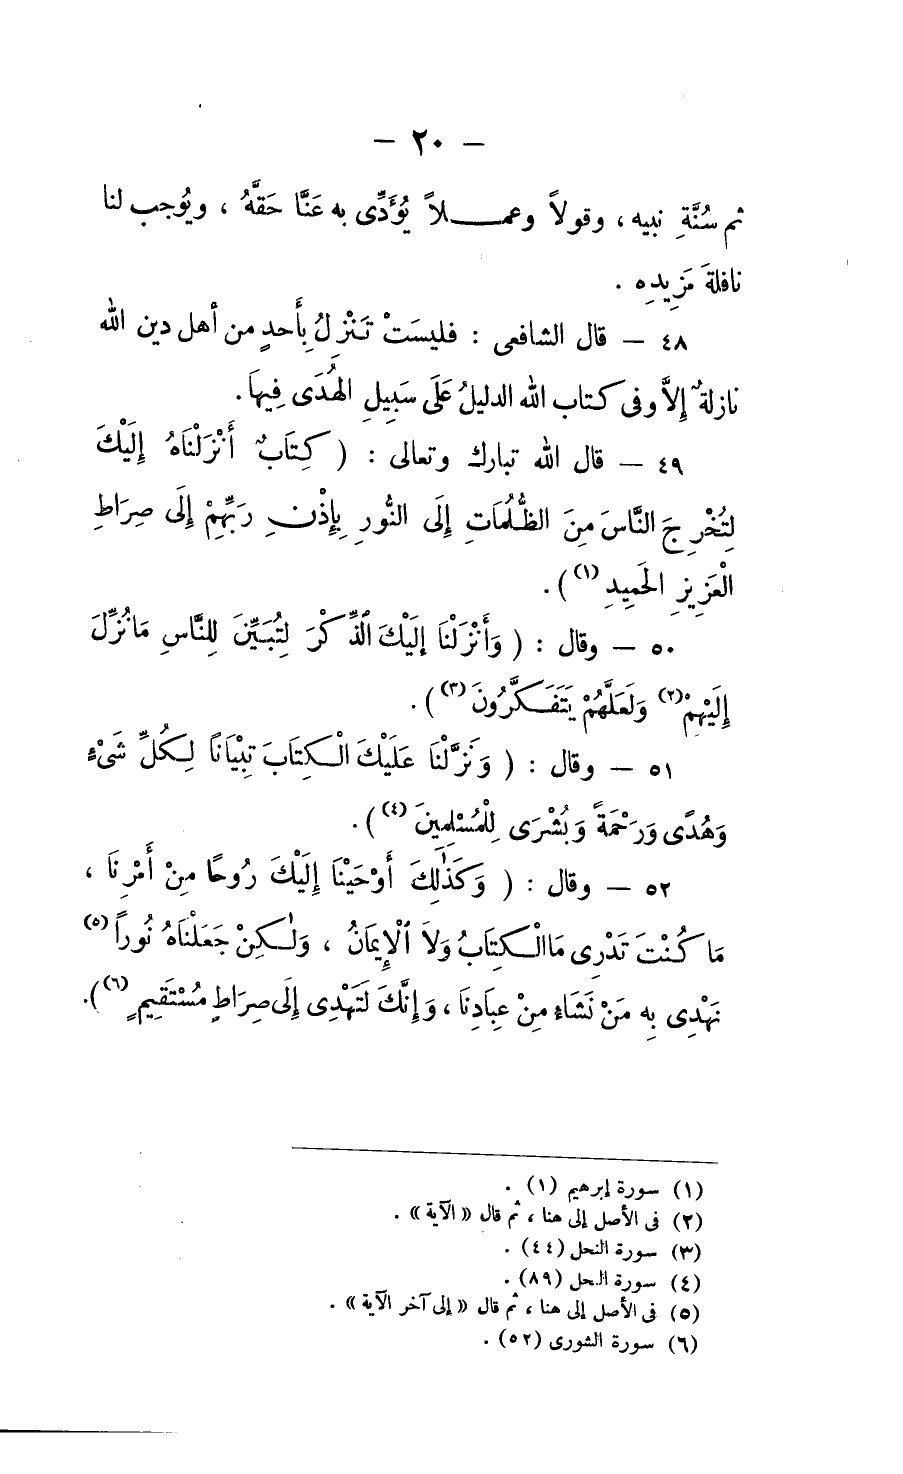 — ٢٠ —
ثم سُنَّةِ نبيه، وقولاً وعمـــلاً يُؤَدِّى به عَنَّا حَقَّهُ ، ويُوجب لنا
نافلةَ مَزِيدِه .
٤٨ — قال الشافعى : فليسَتْ تَنْزِلُ بِأَحدٍ من أهل دين الله
نازلةٌ إِلاَّ وفى كتاب الله الدليلُ عَلَى سَبِيلِ الهُدَى فِيهَا.
٤٩ — قال الله تبارك وتعالى : ( كِتَابٌ أَنْزَلْنَاهُ إِلَيْكَ
لِتُخْرِجَ النَّاسَ مِنَ الظُّلُمَاتِ إِلَى النُّورِ بِإِذْنِ رَبِّهِمْ إِلَى صِرَاطِ
الْعَزِيزِ الحَمِيدِ (١) ) .
٥٠ — وقال : ( وَأَنْزَلْنَا إِلَيْكَ الذِّكْرَ لِتُبَيِّنَ لِلنَّاسِ مَا نُزِّلَ
إِلَيْهِمْ (٢) وَلَعَلَّهُمْ يَتَفَكَّرُونَ (٣) ) .
٥١ — وقال : ( وَنَزَّلْنَا عَلَيْكَ الْكِتَابَ تِبْيَانًا لِكُلِّ شَىْءٍ
وَهُدًى وَرَحْمَةً وَبُشْرَى لِلْمُسْلِمِينَ (٤) ) .
٥٢ — وقال : ( وَكَذَٰلِكَ أَوْحَيْنَا إِلَيْكَ رُوحًا مِنْ أَمْرِنَا ،
مَا كُنْتَ تَدْرِى مَا الْكِتَابُ وَلاَ ٱلْإِيمَانُ ، وَلَٰكِنْ جَعَلْنَاهُ نُوراً (٥)
نَهْدِى بِهِ مَنْ نَشَاءِ مِنْ عِبَادِنَا ، وَإِنَّكَ لَتَهْدِى إِلَى صِرَاطٍ مُسْتَقِيمٍ (٦) ).
(١) سورة إبرهيم (١) .
(٢) فى الأصل إلى هنا ، ثم قال « الآية » .
(٣) سورة النحل (٤٤) .
(٤) سورة النحل (٨٩) .
(٥) فى الأصل إلى هنا ، ثم قال « إلى آخر الآية » .
(٦) سورة الشورى (٥٢) .